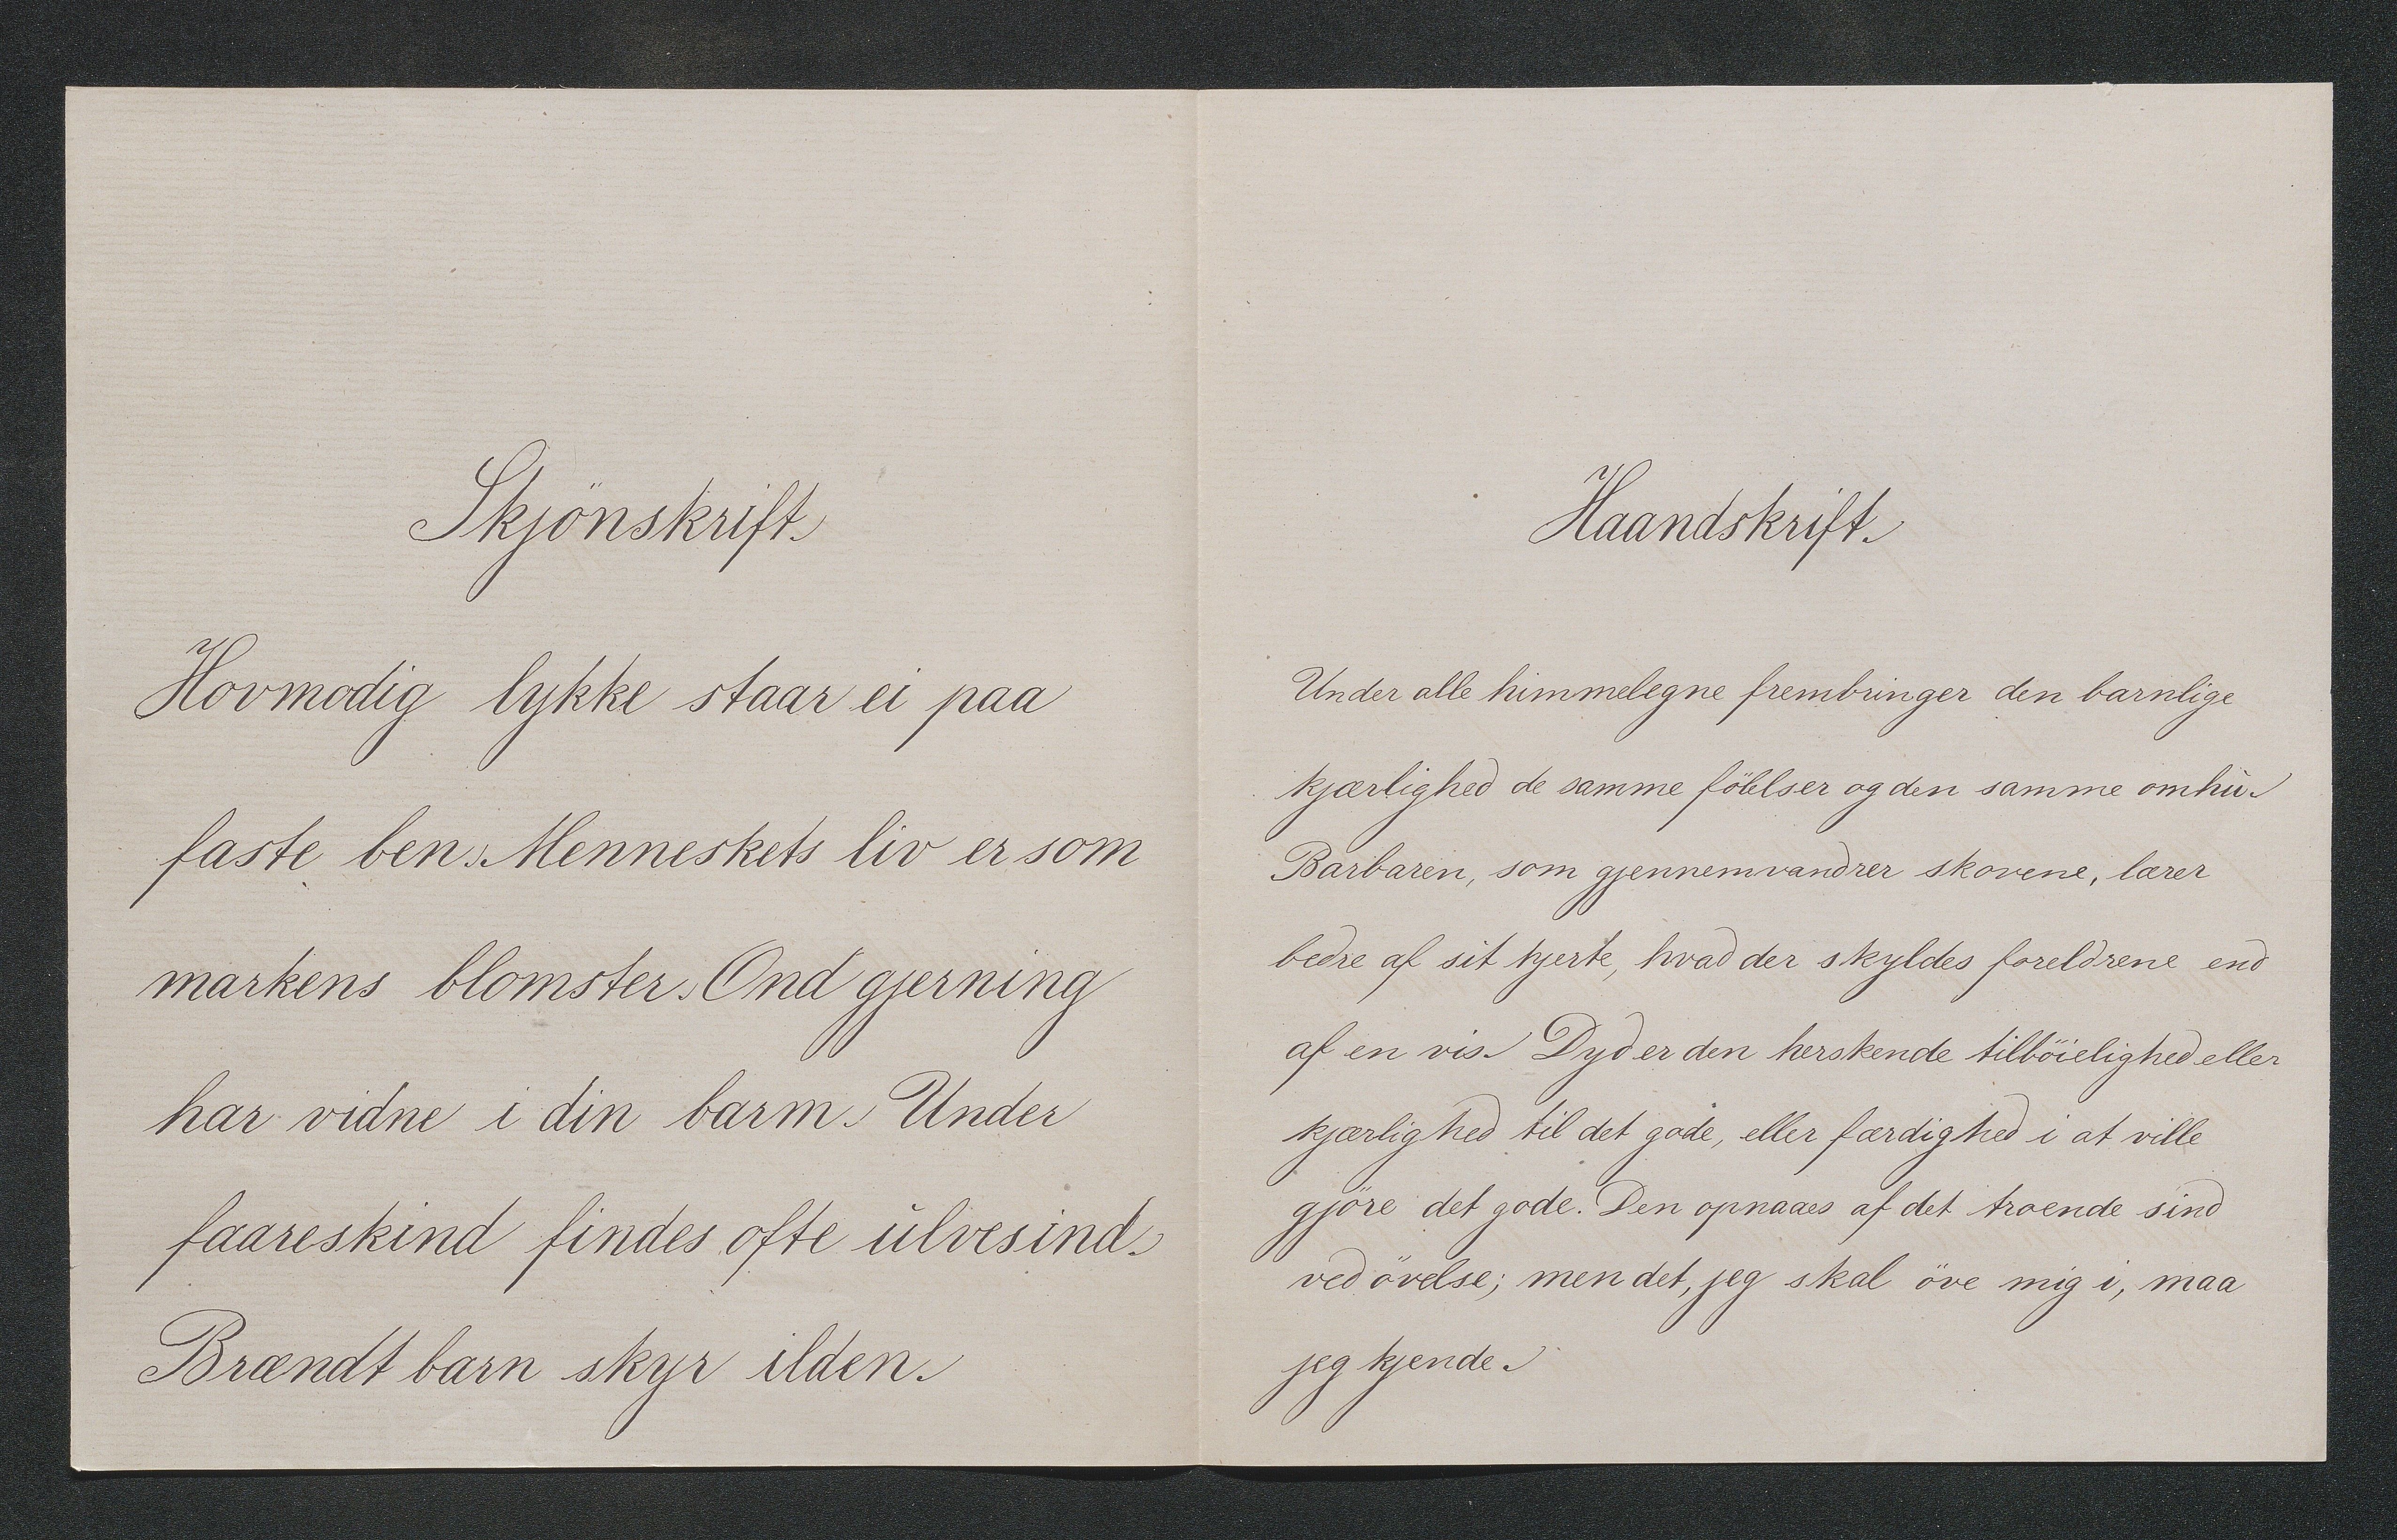 Skjönskrift.
Hovmodig lykke staar ei paa
faste ben. Menneskets liv er som
markens blomster. Ond gjerning
har vidne i din barm. Under
faareskind findes ofte ulvesind.
Brændt barn skyr ilden.
Haandskrift.
Under alle himmelegne frembringer den barnlige
kjærlighed de samme fölelser og den samme omhu.
Barbaren, som gjennemvandrer skovene, lærer
bedre af sit hjerte, hvad der skyldes foreldrene end
af en vis. Dyd er den herskende tilböielighed eller
kjærlighed til det gode, eller færdighed i at ville
gjöre det gode. Den opnaaes af det troende sind
ved övelse; men det, jeg skal öve mig i, maa
jeg kjende.